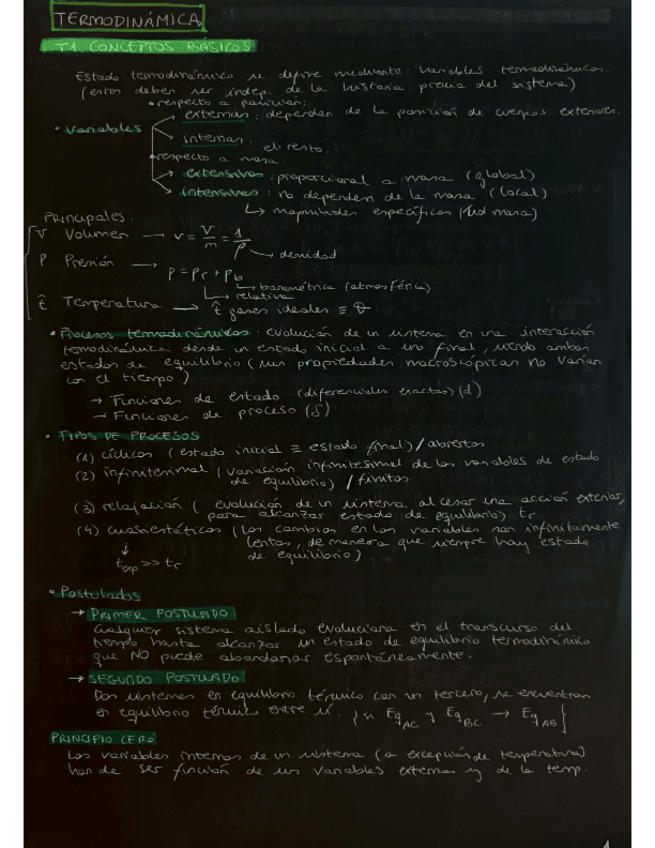 TERMODINÁMICA
T1 CONCEPTOS BÁSICOS
Estado termodinámico se define mediante variables termodinámicas.
(estas deben ser indep. de la historia previa del sistema)
• respecto a posición:
→ externas: dependen de la posición de cuerpos exteriores.
• Variables
→ internas: el resto.
• respecto a masa:
→ extensivas: proporcional a masa (global)
→ intensivas: no dependen de la masa (local)
↳ magnitudes específicas (/ud masa)
PRINCIPALES:
V Volumen → v = V/m = 1/ρ → densidad
P Presión → P = Pr + Pb
↳ barométrica (atmosférica)
↳ relativa
t̂ Temperatura → t̂ gases ideales ≡ θ
• Procesos termodinámicos: evolución de un sistema en una interacción
termodinámica desde un estado inicial a uno final, siendo ambos
estados de equilibrio (sus propiedades macroscópicas no varían
con el tiempo)
→ Funciones de estado (diferenciales exactas) (d)
→ Funciones de proceso (δ)
• TIPOS DE PROCESOS
(1) cíclicos (estado inicial ≡ estado final) / abiertos
(2) infinitesimal (variación infinitesimal de las variables de estado
de equilibrio) / finitos
(3) relajación (evolución de un sistema al cesar una acción exterior,
para alcanzar estado de equilibrio) tr
(4) cuasiestáticos (los cambios en las variables son infinitamente
lentos, de manera que siempre hay estado
de equilibrio)
↓
texp >> tr
• Postulados
→ PRIMER POSTULADO
Cualquier sistema aislado evoluciona en el transcurso del
tiempo hasta alcanzar un estado de equilibrio termodinámico
que NO puede abandonar espontáneamente.
→ SEGUNDO POSTULADO
Dos sistemas en equilibrio térmico con un tercero, se encuentran
en equilibrio térmico entre sí. {si Eq AC y Eq BC → Eq AB}
PRINCIPIO CERO
Las variables internas de un sistema (a excepción de temperatura)
han de ser función de sus variables externas y de la temp.
1